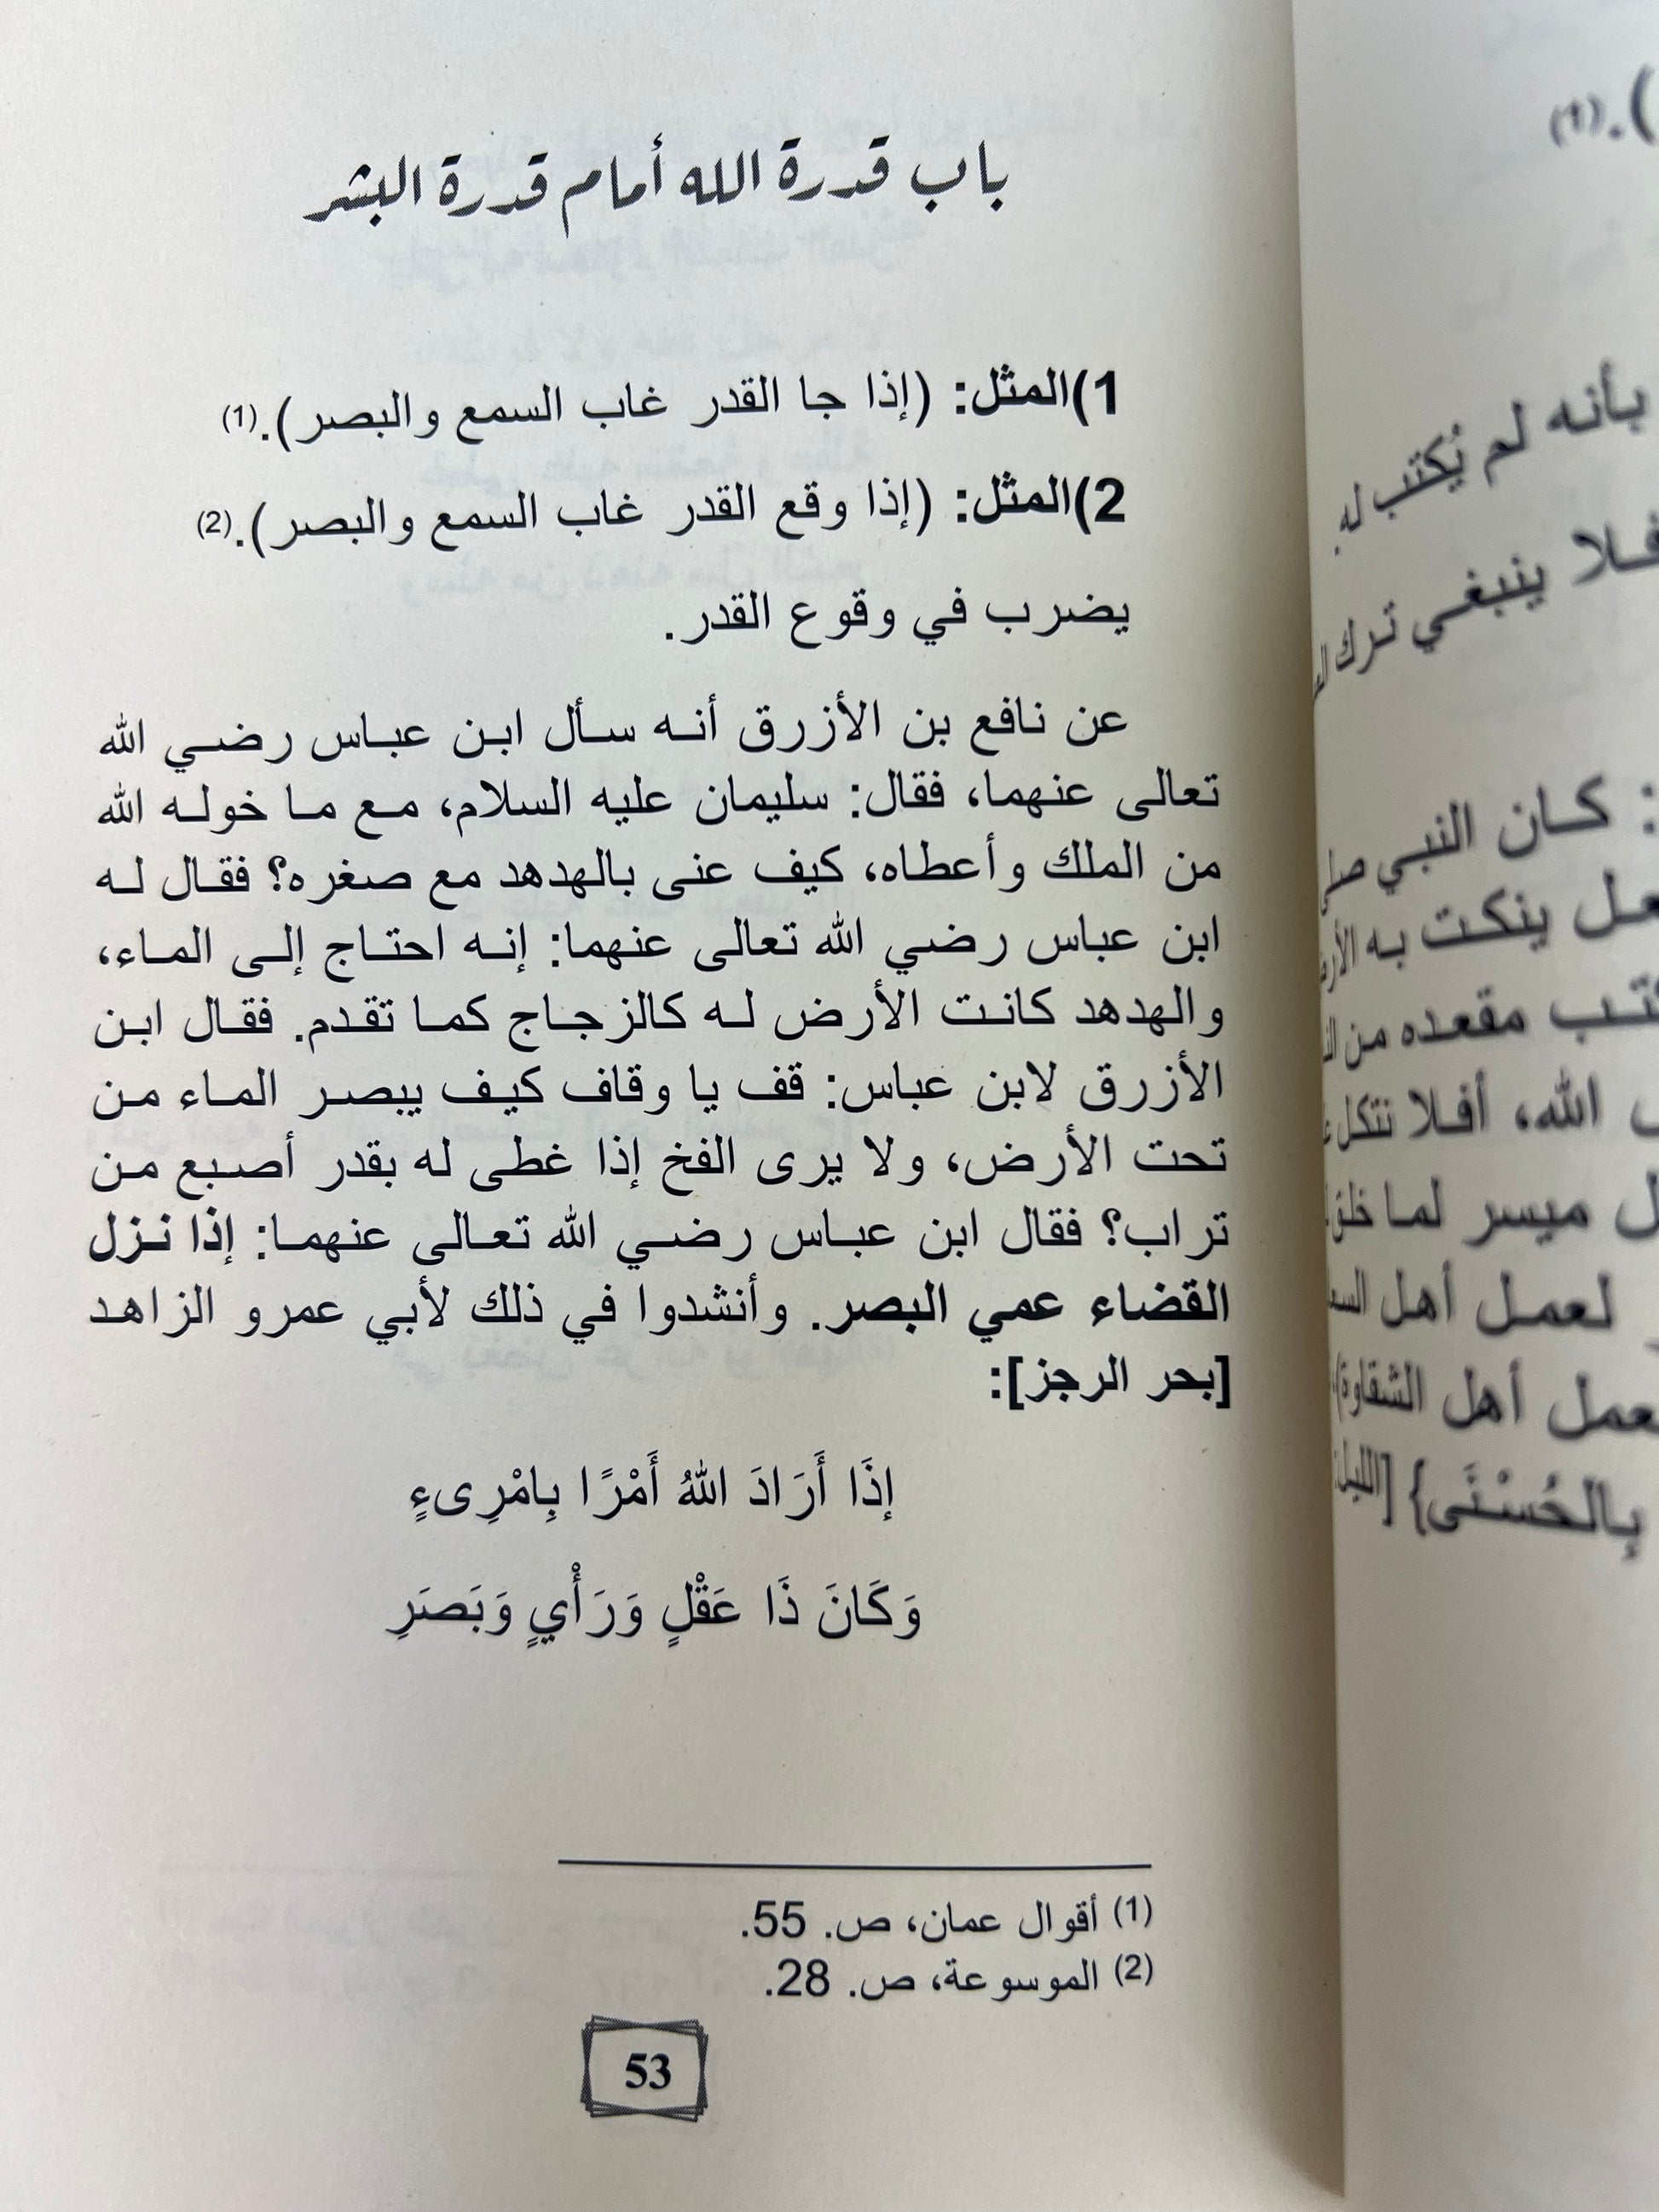 باب قدرة الله أمام قدرة البشر
1)المثل: (إذا جا القدر غاب السمع والبصر).(1)
2)المثل: (إذا وقع القدر غاب السمع والبصر).(2)
يضرب في وقوع القدر.
عن نافع بن الأزرق أنه سأل ابن عباس رضي الله
تعالى عنهما، فقال: سليمان عليه السلام، مع ما خوله الله
من الملك وأعطاه، كيف عنى بالهدهد مع صغره؟ فقال له
ابن عباس رضي الله تعالى عنهما: إنه احتاج إلى الماء،
والهدهد كانت الأرض له كالزجاج كما تقدم. فقال ابن
الأزرق لابن عباس: قف يا وقاف كيف يبصر الماء من
تحت الأرض، ولا يرى الفخ إذا غطى له بقدر أصبع من
تراب؟ فقال ابن عباس رضي الله تعالى عنهما: إذا نزل
القضاء عمي البصر. وأنشدوا في ذلك لأبي عمرو الزاهد
[بحر الرجز]:
إذَا أَرَادَ اللهُ أَمْرًا بِامْرِىءٍ
وَكَانَ ذَا عَقْلٍ وَرَأْيٍ وَبَصَرِ
(1) أقوال عمان، ص. 55.
(2) الموسوعة، ص. 28.
53
).(1)
بأنه لم يُكتب له
فلا ينبغي ترك
: كان النبي
ينكت به
مقعده من
الله، أفلا نتكل
ميسر لما خلق
لعمل أهل
أهل الشقاوة)
بِالحُسْنَى} [الليل